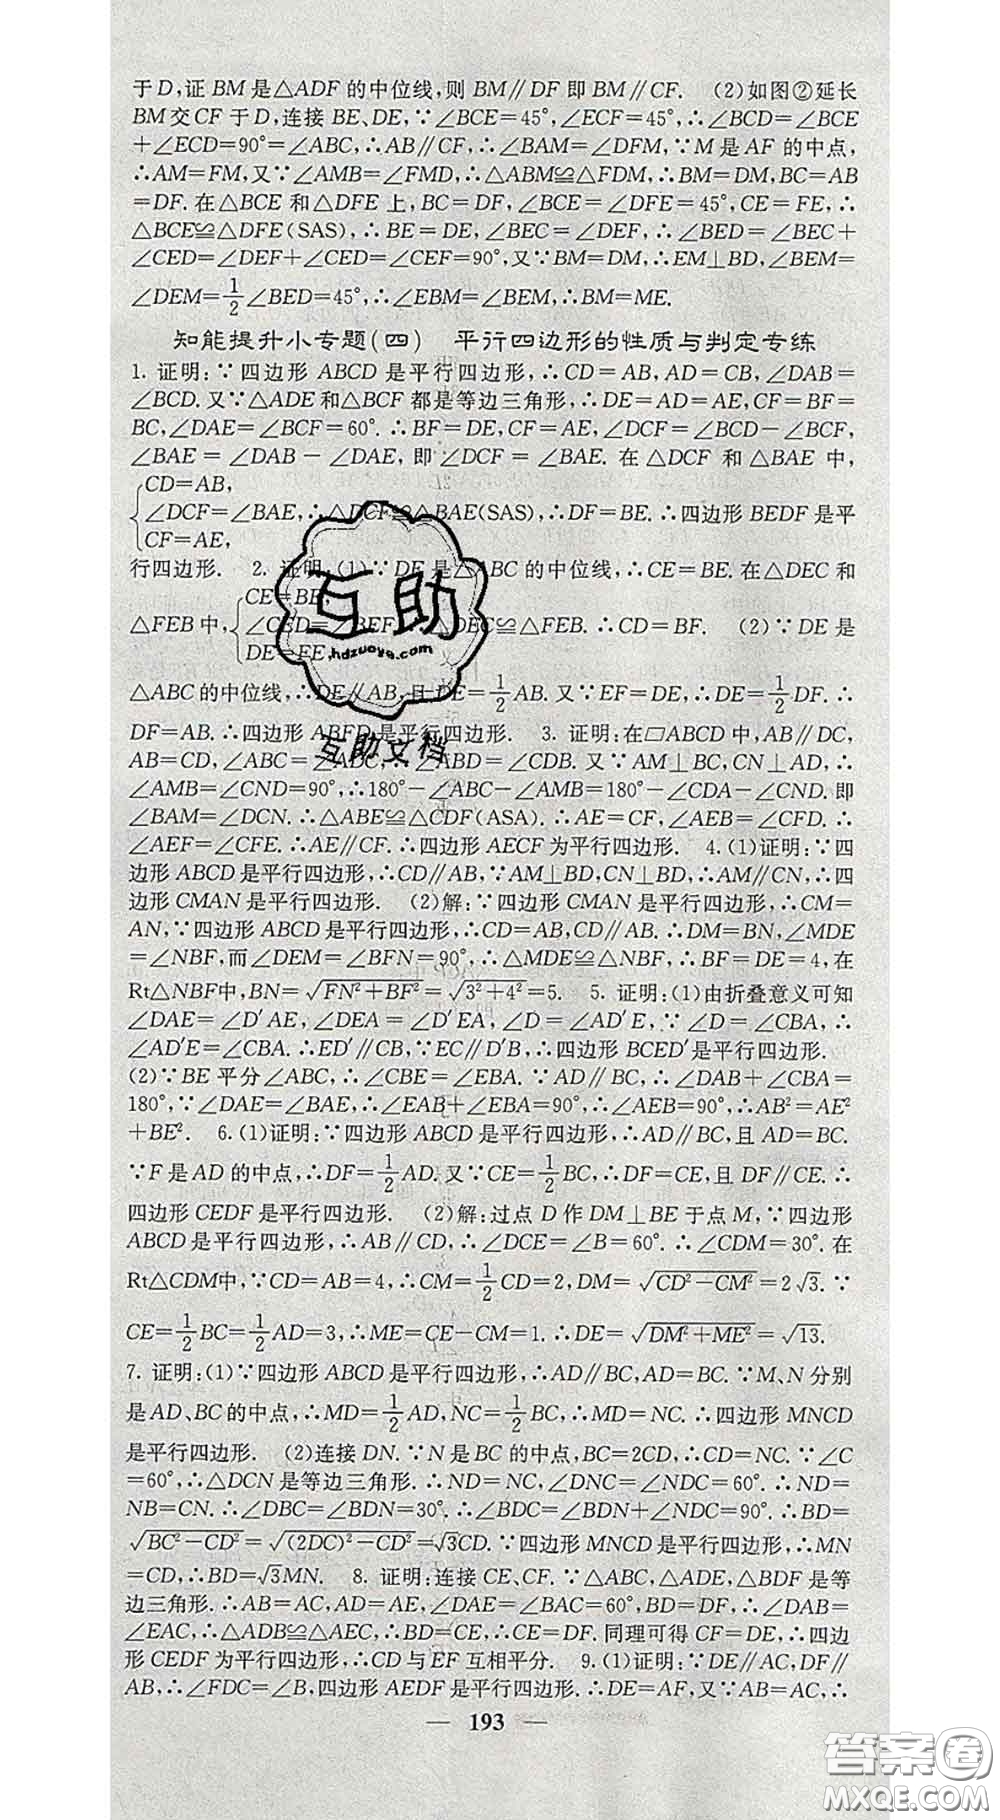 于D,证BM是△ADF的中位线,则BM∥DF即BM∥CF. (2)如图②延长
BM交CF于D,连接BE、DE,∵∠BCE=45°,∠ECF=45°,∴∠BCD=∠BCE
+∠ECD=90°=∠ABC,∴AB∥CF,∴∠BAM=∠DFM,∵M是AF的中点,
∴AM=FM,又∵∠AMB=∠FMD,∴△ABM≌△FDM,∴BM=DM,BC=AB
=DF.在△BCE和△DFE上,BC=DF,∠BCE=∠DFE=45°,CE=FE,∴
△BCE≌△DFE(SAS),∴BE=DE,∠BEC=∠DEF,∴∠BED=∠BEC+
∠CED=∠DEF+∠CED=∠CEF=90°,又∵BM=DM,∴EM⊥BD,∠BEM=
∠DEM=1/2∠BED=45°,∴∠EBM=∠BEM,∴BM=ME.
知能提升小专题(四) 平行四边形的性质与判定专练
1. 证明:∵四边形ABCD是平行四边形,∴CD=AB,AD=CB,∠DAB=
∠BCD.又∵△ADE和△BCF都是等边三角形,∴DE=AD=AE,CF=BF=
BC,∠DAE=∠BCF=60°.∴BF=DE,CF=AE,∠DCF=∠BCD-∠BCF,
∠BAE=∠DAB-∠DAE,即∠DCF=∠BAE.在△DCF和△BAE中,
CD=AB,
∠DCF=∠BAE,∴△DCF≌△BAE(SAS),∴DF=BE.∴四边形BEDF是平
CF=AE,
行四边形. 2. 证明:(1)∵DE是△ABC的中位线,∴CE=BE.在△DEC和
CE=BE,
△FEB中,∠CED=∠BEF,∴△DEC≌△FEB.∴CD=BF. (2)∵DE是
DE=FE,
△ABC的中位线,∴DE∥AB,且DE=1/2AB.又∵EF=DE,∴DE=1/2DF.∴
DF=AB.∴四边形ABFD是平行四边形. 3. 证明:在▱ABCD中,AB∥DC,
AB=CD,∠ABC=∠ADC,∴∠ABD=∠CDB.又∵AM⊥BC,CN⊥AD,∴
∠AMB=∠CND=90°,∴180°-∠ABC-∠AMB=180°-∠CDA-∠CND.即
∠BAM=∠DCN.∴△ABE≌△CDF(ASA).∴AE=CF,∠AEB=∠CFD.∴
∠AEF=∠CFE.∴AE∥CF.∴四边形AECF为平行四边形. 4.(1)证明:∵四
边形ABCD是平行四边形,∴CD∥AB,∵AM⊥BD,CN⊥BD,∴AM∥CN,∴四
边形CMAN是平行四边形. (2)解:∵四边形CMAN是平行四边形,∴CM=
AN,∵四边形ABCD是平行四边形,∴CD=AB,CD∥AB.∴DM=BN,∠MDE
=∠NBF,而∠DEM=∠BFN=90°,∴△MDE≌△NBF,∴BF=DE=4,在
Rt△NBF中,BN=√(FN²+BF²)=√(3²+4²)=5. 5. 证明:(1)由折叠意义可知
∠DAE=∠D′AE,∠DEA=∠D′EA,∠D=∠AD′E,∵∠D=∠CBA,∴
∠AD′E=∠CBA.∴ED′∥CB,∵EC∥D′B,∴四边形BCED′是平行四边形.
(2)∵BE平分∠ABC,∴∠CBE=∠EBA.∵AD∥BC,∴∠DAB+∠CBA=
180°,∵∠DAE=∠BAE,∴∠EAB+∠EBA=90°,∴∠AEB=90°,∴AB²=AE²
+BE². 6.(1)证明:∵四边形ABCD是平行四边形,∴AD∥BC,且AD=BC.
∵F是AD的中点,∴DF=1/2AD.又∵CE=1/2BC,∴DF=CE,且DF∥CE.∴
四边形CEDF是平行四边形. (2)解:过点D作DM⊥BE于点M,∵四边形
ABCD是平行四边形,∴AB∥CD,∴∠DCE=∠B=60°.∴∠CDM=30°.在
Rt△CDM中,∵CD=AB=4,∴CM=1/2CD=2,DM=√(CD²-CM²)=2√3.∵
CE=1/2BC=1/2AD=3,∴ME=CE-CM=1.∴DE=√(DM²+ME²)=√13.
7. 证明:(1)∵四边形ABCD是平行四边形,∴AD∥BC,AD=BC.∵M、N分别
是AD、BC的中点,∴MD=1/2AD,NC=1/2BC,∴MD=NC.∴四边形MNCD
是平行四边形. (2)连接DN.∵N是BC的中点,BC=2CD,∴CD=NC.∵∠C
=60°,∴△DCN是等边三角形.∴ND=NC,∠DNC=∠NDC=60°.∴ND=
NB=CN.∴∠DBC=∠BDN=30°.∴∠BDC=∠BDN+∠NDC=90°.∴BD=
√(BC²-CD²)=√((2DC)²-CD²)=√3CD.∵四边形MNCD是平行四边形,∴MN
=CD,∴BD=√3MN. 8. 证明:连接CE、CF.∵△ABC,△ADE,△BDF是等
边三角形.∴AB=AC,AD=AE,∠DAE=∠BAC=60°,BD=DF,∴∠DAB=
∠EAC,∴△ADB≌△AEC,∴BD=CE,∴CE=DF.同理可得CF=DE,∴四边
形CEDF为平行四边形,∴CD与EF互相平分. 9.(1)证明:∵DE∥AC,DF∥
AB,∴∠FDC=∠B,四边形AEDF是平行四边形.∴DE=AF,又∵AB=AC,∴
— 193 —
互助
.hdzuoye.com
互助文档
答案圈
MXQE.COM